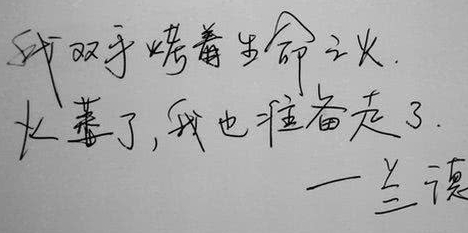 我双手烤着生命之火.
火萎了,我也准备走了.
—兰德